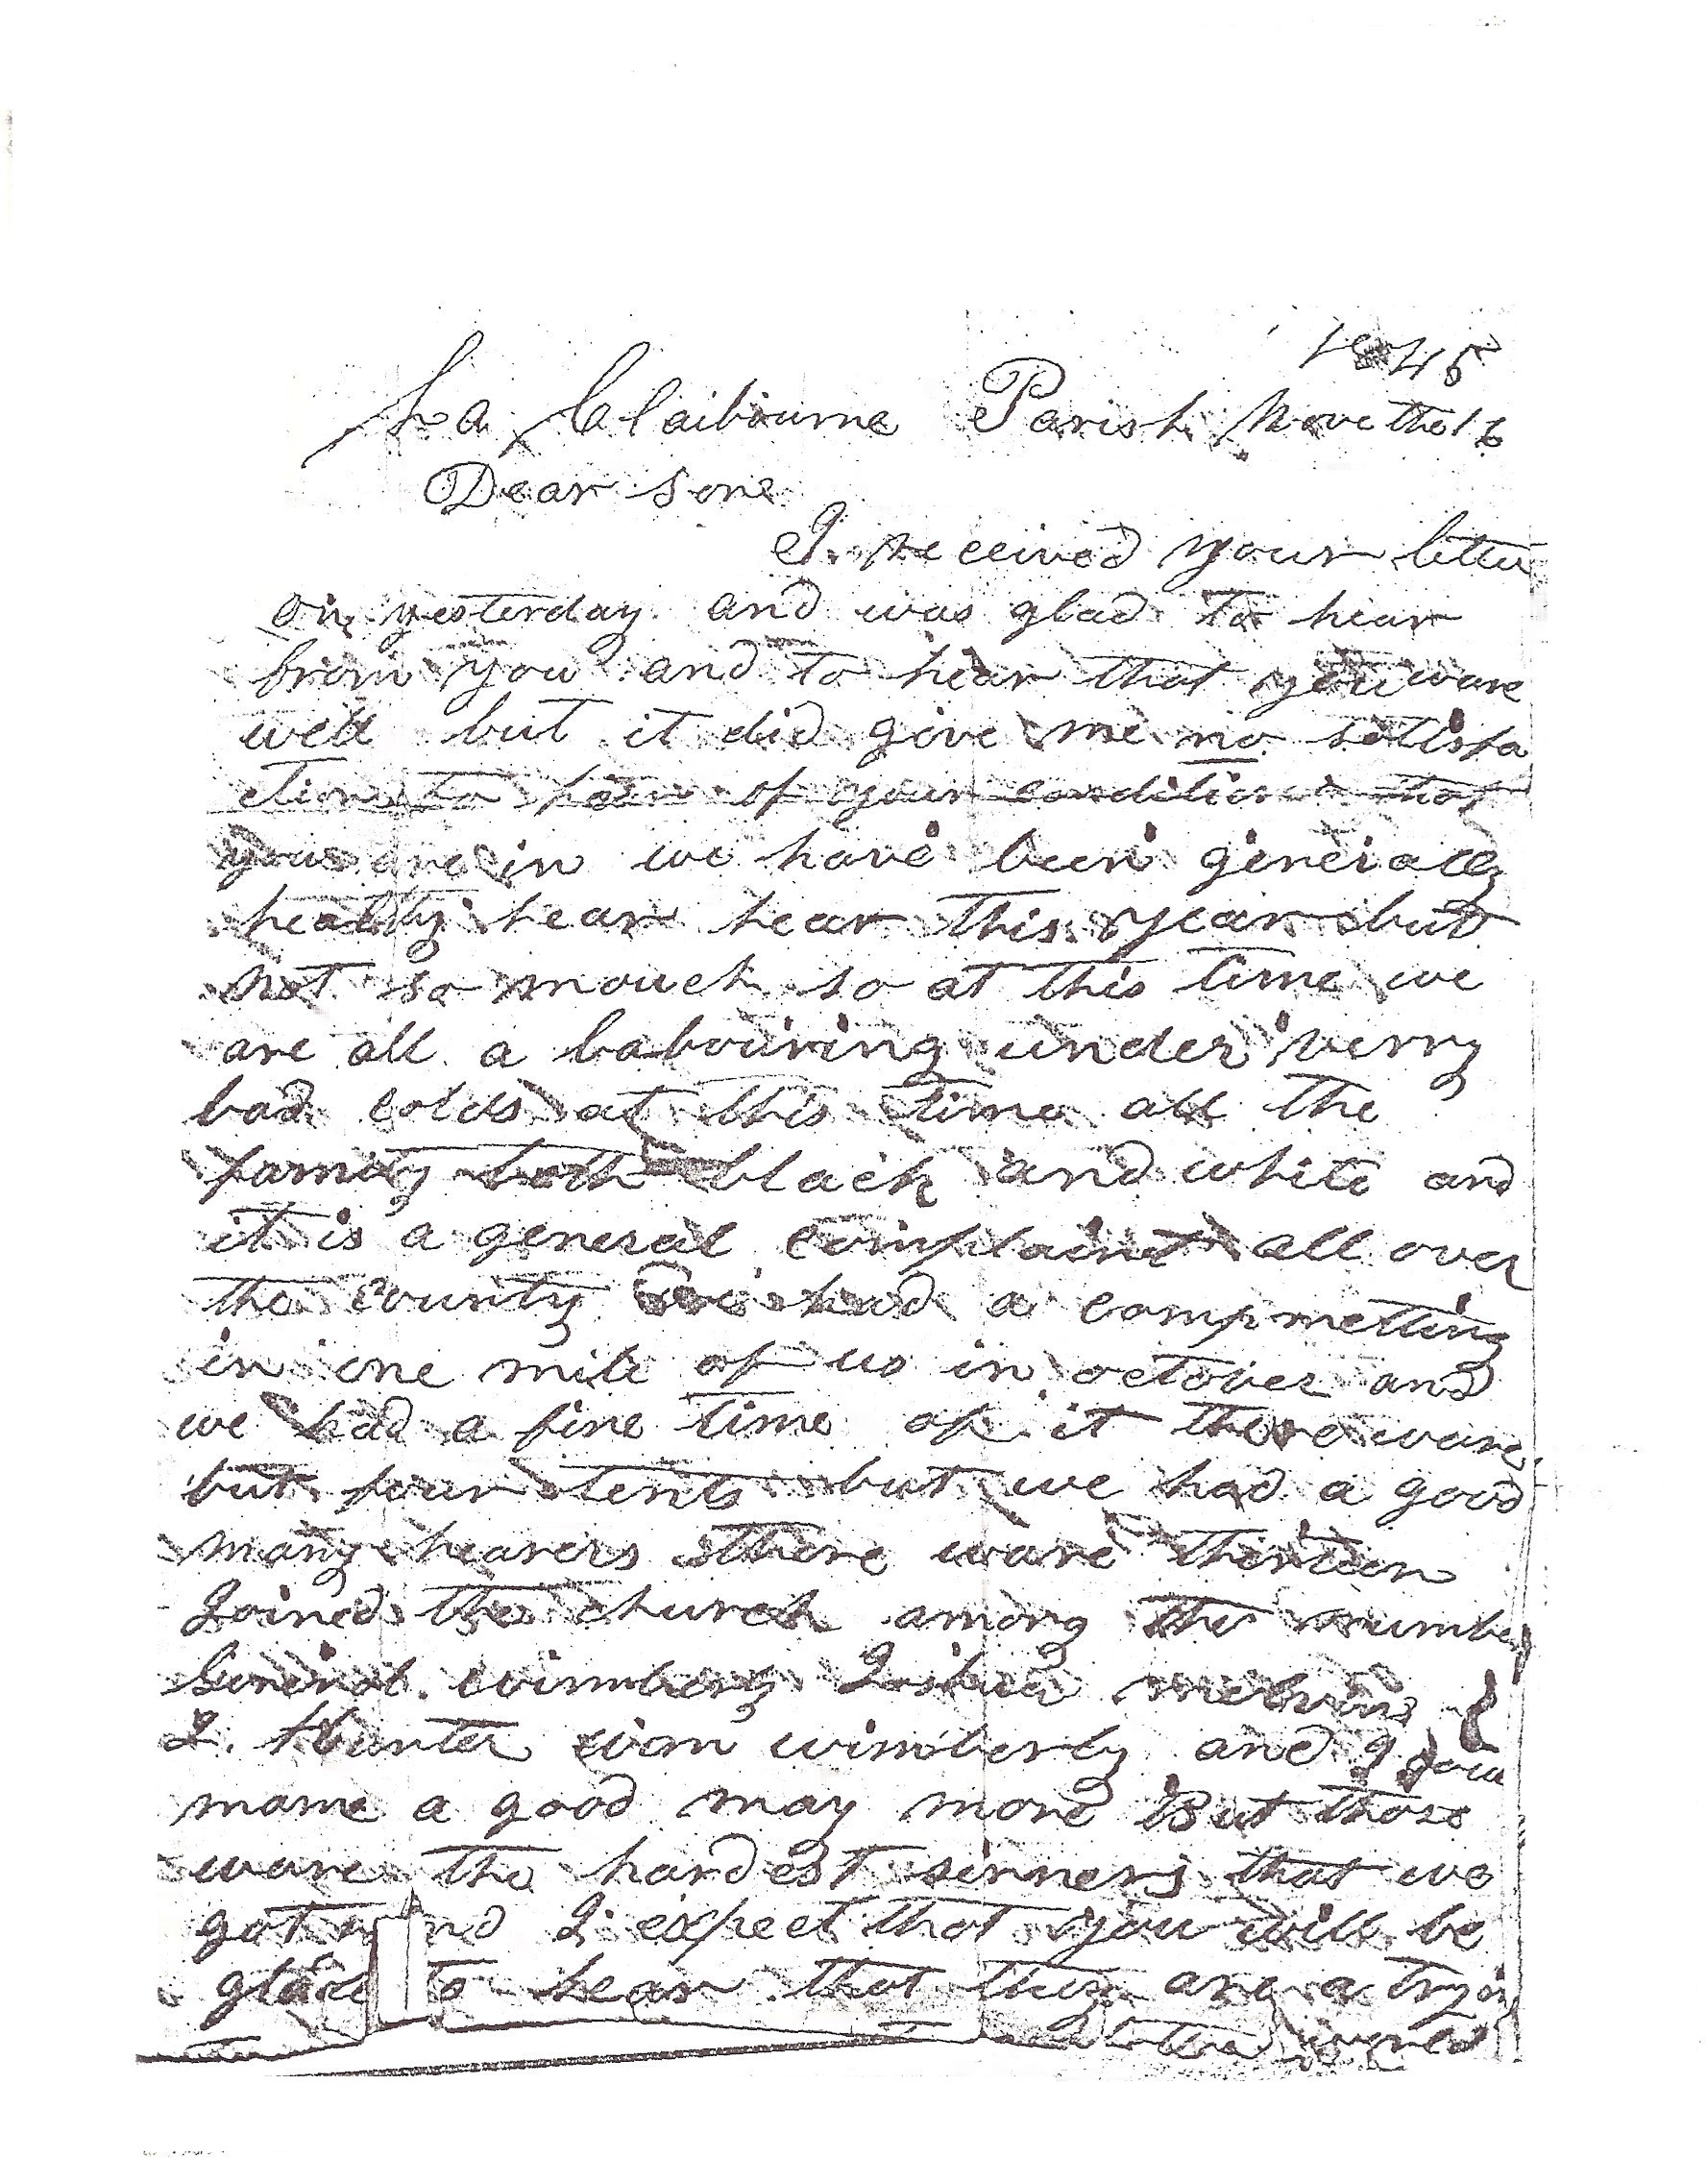 1845
La Claibourne Parish Nove the 16
Dear sone
I received your letter
on yesterday and was glad to hear
from you and to hear that you ware
well but it did give me no satisfa
ction to hear of your condition that
you are in we have been generally
healthy hear hear this year but
not so mouch so at this time we
are all a labouring under verry
bad colds at this time all the
family both black and white and
it is a general complaint all over
the county we had a campmetting
in one mile of us in october and
we had a fine time of it there ware
but four tents but we had a good
many hearers there ware thirteen
Joined the church among the number
wimberly
J. Hunter wimberly and
name a good may more But those
ware the hardest sinners that we
got and I expect that you will be
glad to hear that they are a trying
the world